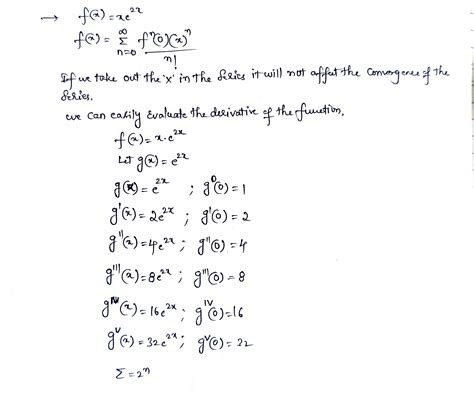 → f(x) = xe^{2x}
f(x) = ∑_{n=0}^{∞} f^n(0)(x)^n / n!
If we take out the 'x' in the series it will not affect the convergence of the
series.
we can easily evaluate the derivative of the function.
f(x) = x·e^{2x}
Let g(x) = e^{2x}
g(x) = e^{2x} ; g^0(0) = 1
g'(x) = 2e^{2x} ; g'(0) = 2
g''(x) = 4e^{2x} ; g''(0) = 4
g'''(x) = 8e^{2x} ; g'''(0) = 8
g^{IV}(x) = 16e^{2x} ; g^{IV}(0) = 16
g^V(x) = 32e^{2x} ; g^V(0) = 22
Σ = 2^n